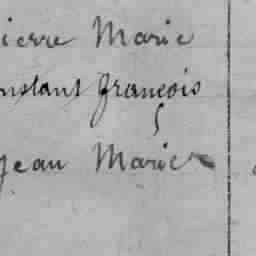 ierre Marie
nstant françois
Jean Marie